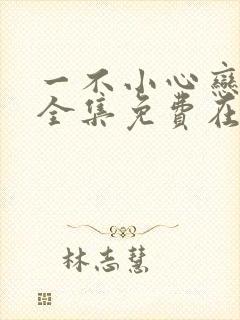 一不小心戀
全集免費在
林志慧